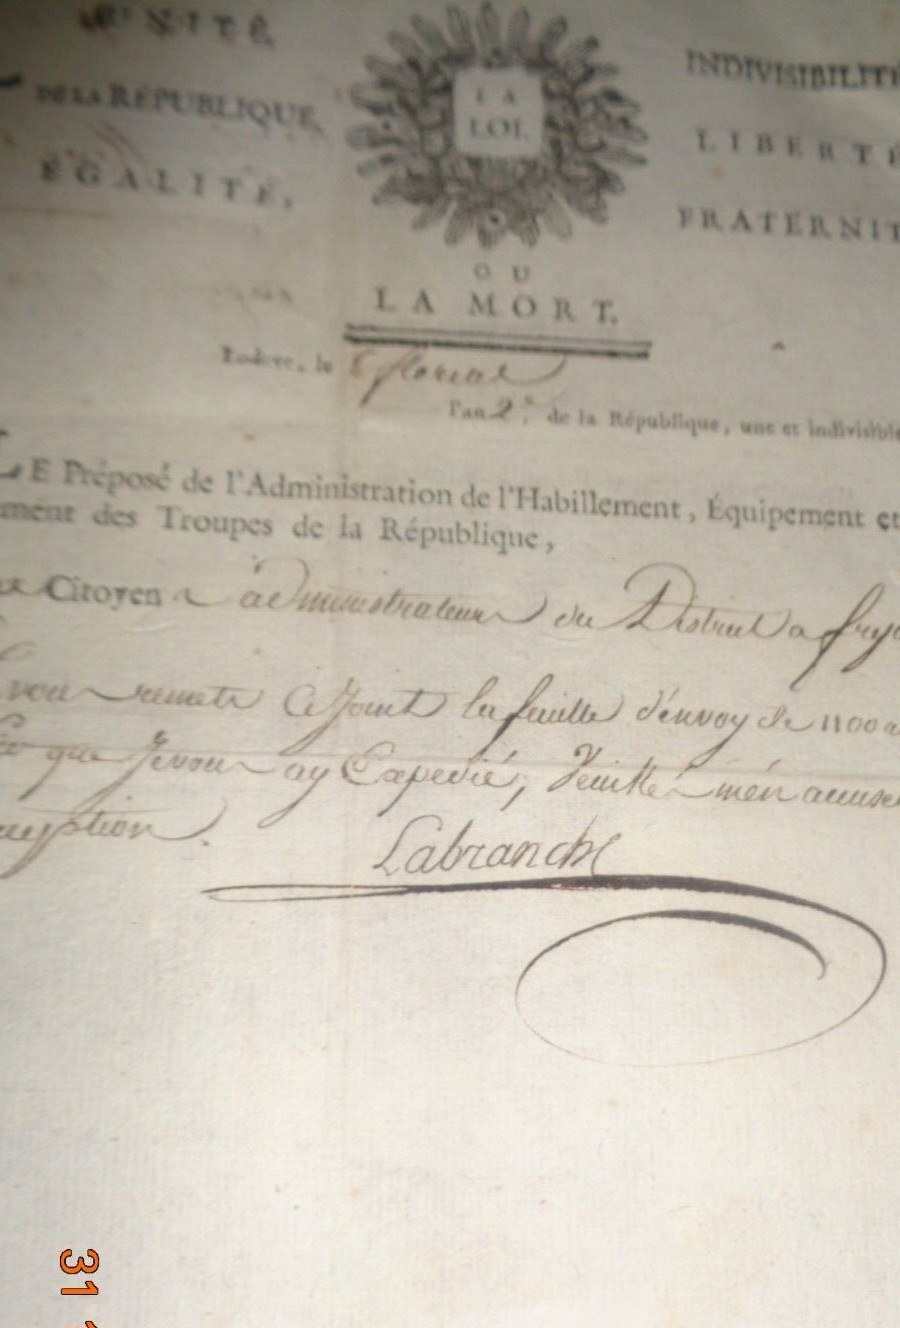 UNITÉ
DE LA RÉPUBLIQUE
ÉGALITÉ,
LA
LOI.
INDIVISIBILITÉ
LIBERTÉ
FRATERNIT
OU
LA MORT.
le 8 floreal
l'an 2e. de la République, une et indivisible
LE Préposé de l'Administration de l'Habillement, Équipement et
ment des Troupes de la République,
Citoyen administrateur du District a
vous remets Cy Joint la feuille d'envoy de 1100
que Je vous ay Expedié, Veuillé m'en accuse
ception.
Labranche
31